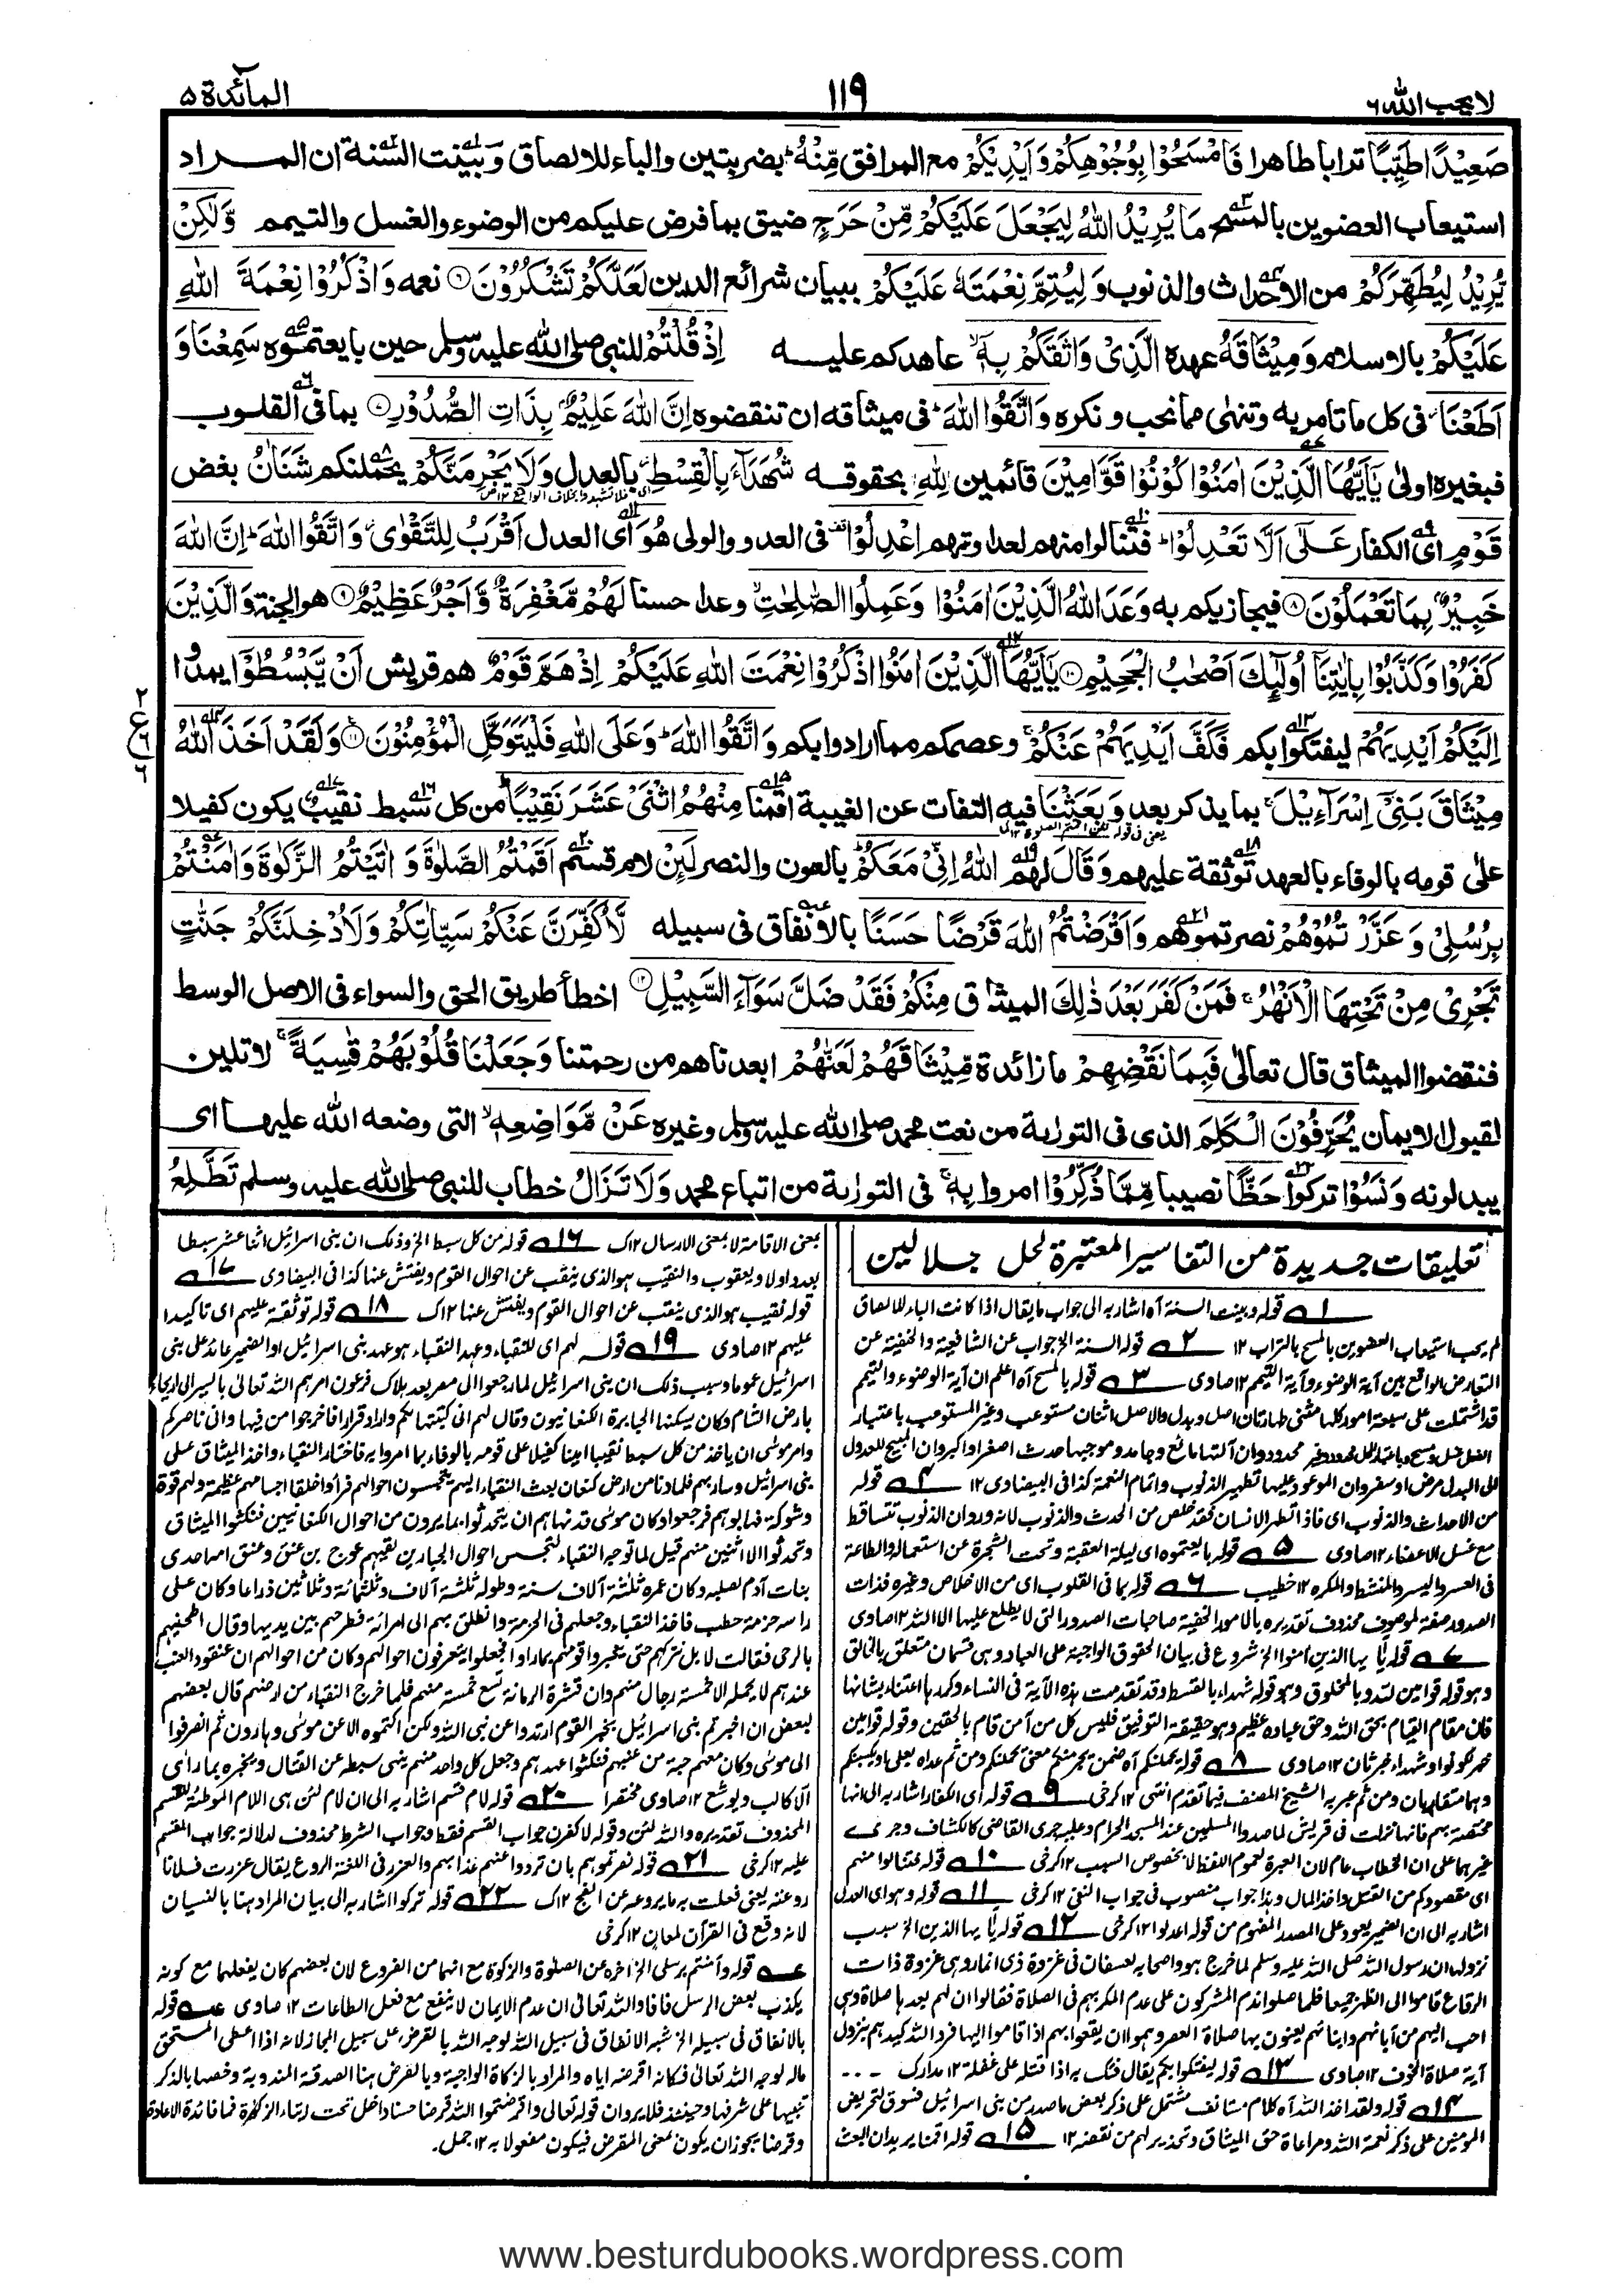 لا يحب الله ٦
١١٩
المآئدة ٥
صَعِيْدًا طَيِّبًا ترابا طاهرا فَامْسَحُوْا بِوُجُوْهِكُمْ وَاَيْدِيْكُمْ مع المرافق مِّنْهُ ؕ بضربتين والباء للالصاق وبينت السنة ان المراد
استيعاب العضوين بالمسح مَا يُرِيْدُ اللّٰهُ لِيَجْعَلَ عَلَيْكُمْ مِّنْ حَرَجٍ ضيق بما فرض عليكم من الوضوء والغسل والتيمم وَّلٰكِنْ
يُّرِيْدُ لِيُطَهِّرَكُمْ من الاحداث والذنوب وَلِيُتِمَّ نِعْمَتَهٗ عَلَيْكُمْ ببيان شرائع الدين لَعَلَّكُمْ تَشْكُرُوْنَ ۝٦ نعمه وَاذْكُرُوْا نِعْمَةَ اللّٰهِ
عَلَيْكُمْ بالاسلام وَمِيْثَاقَهُ عهده الَّذِيْ وَاثَقَكُمْ بِهٖٓ ۙ عاهدكم عليه اِذْ قُلْتُمْ للنبي صلى الله عليه وسلم حين بايعتموه سَمِعْنَا وَ
اَطَعْنَا ؗ فى كل ما تامر به وتنهى مما نحب ونكره وَاتَّقُوا اللّٰهَ ؕ فى ميثاقه ان تنقضوه اِنَّ اللّٰهَ عَلِيْمٌۢ بِذَاتِ الصُّدُوْرِ ۝٧ بما فى القلوب
فبغيره اولى يٰٓاَيُّهَا الَّذِيْنَ اٰمَنُوْا كُوْنُوْا قَوّٰمِيْنَ قائمين لِلّٰهِ بحقوقه شُهَدَآءَ بِالْقِسْطِ ؗ بالعدل وَلَا يَجْرِمَنَّكُمْ يحملنكم شَنَاٰنُ بغض
قَوْمٍ اى الكفار عَلٰٓى اَلَّا تَعْدِلُوْا ؕ فتنالوا منهم لعداوتهم اِعْدِلُوْا ۟ فى العدو والولى هُوَ اى العدل اَقْرَبُ لِلتَّقْوٰى ؗ وَاتَّقُوا اللّٰهَ ؕ اِنَّ اللّٰهَ
خَبِيْرٌۢ بِمَا تَعْمَلُوْنَ ۝٨ فيجازيكم به وَعَدَ اللّٰهُ الَّذِيْنَ اٰمَنُوْا وَعَمِلُوا الصّٰلِحٰتِ ۙ وعدا حسنا لَهُمْ مَّغْفِرَةٌ وَّاَجْرٌ عَظِيْمٌ ۝٩ هو الجنة وَالَّذِيْنَ
كَفَرُوْا وَكَذَّبُوْا بِاٰيٰتِنَآ اُولٰٓئِكَ اَصْحٰبُ الْجَحِيْمِ ۝١٠ يٰٓاَيُّهَا الَّذِيْنَ اٰمَنُوا اذْكُرُوْا نِعْمَتَ اللّٰهِ عَلَيْكُمْ اِذْ هَمَّ قَوْمٌ هم قريش اَنْ يَّبْسُطُوْٓا يمدوا
اِلَيْكُمْ اَيْدِيَهُمْ ليفتكوا بكم فَكَفَّ اَيْدِيَهُمْ عَنْكُمْ ۚ وعصمكم مما ارادوا بكم وَاتَّقُوا اللّٰهَ ؕ وَعَلَى اللّٰهِ فَلْيَتَوَكَّلِ الْمُؤْمِنُوْنَ ۝١١ وَلَقَدْ اَخَذَ اللّٰهُ
مِيْثَاقَ بَنِيْٓ اِسْرَآءِيْلَ ۚ بما يذكر بعد وَبَعَثْنَا فيه التفات عن الغيبة اقمنا مِنْهُمُ اثْنَيْ عَشَرَ نَقِيْبًا ؕ من كل سبط نقيب يكون كفيلا
على قومه بالوفاء بالعهد توثقة عليهم وَقَالَ لهم اللّٰهُ اِنِّيْ مَعَكُمْ ؕ بالعون والنصر لَئِنْ لام قسم اَقَمْتُمُ الصَّلٰوةَ وَاٰتَيْتُمُ الزَّكٰوةَ وَاٰمَنْتُمْ
بِرُسُلِيْ وَعَزَّرْتُمُوْهُمْ نصرتموهم وَاَقْرَضْتُمُ اللّٰهَ قَرْضًا حَسَنًا بالانفاق فى سبيله لَّاُكَفِّرَنَّ عَنْكُمْ سَيِّاٰتِكُمْ وَلَاُدْخِلَنَّكُمْ جَنّٰتٍ
تَجْرِيْ مِنْ تَحْتِهَا الْاَنْهٰرُ ۚ فَمَنْ كَفَرَ بَعْدَ ذٰلِكَ الميثاق مِنْكُمْ فَقَدْ ضَلَّ سَوَآءَ السَّبِيْلِ ۝١٢ اخطأ طريق الحق والسواء فى الاصل الوسط
فنقضوا الميثاق قال تعالى فَبِمَا نَقْضِهِمْ ما زائدة مِّيْثَاقَهُمْ لَعَنّٰهُمْ ابعدناهم من رحمتنا وَجَعَلْنَا قُلُوْبَهُمْ قٰسِيَةً ۚ لا تلين
لقبول الايمان يُحَرِّفُوْنَ الْكَلِمَ الذى فى التورٰىة من نعت محمد صلى الله عليه وسلم وغيره عَنْ مَّوَاضِعِهٖ ۙ التى وضعه الله عليها اى
يبدلونه وَنَسُوْا تركوا حَظًّا نصيبا مِّمَّا ذُكِّرُوْا امروا بِهٖ ۚ فى التورٰىة من اتباع محمد وَلَا تَزَالُ خطاب للنبي صلى الله عليه وسلم تَطَّلِعُ
تعليقات جديدة من التفاسير المعتبرة لحل جلالين
١ قوله وبينت السنة آه اشار به الى جواب ما يقال اذا كانت الباء للالصاق
لم يجب استيعاب العضوين بالمسح بالتراب ١٢ ٢ قوله السنة الخ جواب عن الشافعية والحنفية عن
التعارض الواقع بين آية الوضوء وآية التيمم ١٢ صاوى ٣ قوله بالمسح آه اعلم ان آية الوضوء والتيمم
قد اشتملت على سبعة امور كلها مثنى طهارتان اصل وبدل والاصل اثنان مستوعب وغير المستوعب باعتبار
من الاحداث والذنوب اى فاذا تطهر الانسان فقد خلص من الحدث والذنوب لانه ورد ان الذنوب تتساقط
مع غسل الاعضاء ١٢ صاوى ٥ قوله بايعتموه اى ليلة العقبة وتحت الشجرة عن استعماله والطاعة
فى العسر واليسر والمنشط والمكره ١٢ خطيب ٦ قوله بما فى القلوب اى من الاخلاص وغيره فذات
الصدور صفة لموصوف محذوف تقديره بالامور الخفية صاحبات الصدور التى لا يطلع عليها الا الله ١٢ صاوى
٧ قوله يا يها الذين آمنوا الخ شروع فى بيان الحقوق الواجبة على العباد وهى قسمان متعلق بالخالق
وهو قوله قوامين لله وبالمخلوق وهو قوله شهداء بالقسط وقد تقدمت هذه الآية فى النساء وكررها اعتناء بشانها
اشار به الى ان الضمير يعود على المصدر المفهوم من قوله اعدلوا ١٢ كرخى ١٢ قوله يا يها الذين الخ سبب
نزولها ان رسول الله صلى الله عليه وسلم لما خرج هو واصحابه بعسفان فى غزوة ذى انمار وهى غزوة ذات
الرقاع قاموا الى الظهر جميعا فلما صلوا ندم المشركون على عدم المكر بهم فى الصلاة فقالوا ان لهم بعدها صلاة وهى
احب اليهم من آبائهم وابنائهم يعنون بها صلاة العصر وهموا ان يقعوا بهم اذا قاموا اليها فرد الله كيدهم بنزول
آية صلاة الخوف ١٢ صاوى ١٣ قوله ليفتكوا بكم يقال فتك به اذا قتله على غفلة ١٢ مدارك
١٤ قوله ولقد اخذ الله آه كلام مستانف مشتمل على ذكر بعض ما صدر من بنى اسرائيل فسوق لتحريض
المؤمنين على ذكر نعمة الله ومراعاة حق الميثاق وتحذير لهم من نقضه ١٢ ١٥ قوله اقمنا يريد ان البعث
بمعنى الاقامة لا بمعنى الارسال ١٢ك ١٦ قوله من كل سبط الخ وذلك ان بنى اسرائيل اثنا عشر سبطا
بعدد اولاد يعقوب والنقيب هو الذى ينقب عن احوال القوم ويفتش عنها كذا فى البيضاوى ١٧
قوله نقيب هو الذى ينقب عن احوال القوم ويفتش عنها ١٢ك ١٨ قوله توثقة عليهم اى تاكيدا
عليهم ١٢ صاوى ١٩ قوله لهم اى للنقباء وعهد النقباء هو عهد بنى اسرائيل او الضمير عائد على بنى
اسرائيل عموما وسبب ذلك ان بنى اسرائيل لما رجعوا الى مصر بعد هلاك فرعون امرهم الله تعالى بالسير الى اريحاء
بارض الشام وكان يسكنها الجبابرة الكنعانيون وقال لهم انى كتبتها لكم دارا وقرارا فاخرجوا من فيها وانى ناصركم
وامر موسى ان ياخذ من كل سبط نقيبا امينا كفيلا على قومه بالوفاء بما امروا به فاختار النقباء واخذ الميثاق على
بنى اسرائيل وسار بهم فلما دنا من ارض كنعان بعث النقباء اليهم يتجسسون احوالهم فرأوا خلقا اجسامهم عظيمة ولهم قوة
وشوكة فهابوهم فرجعوا وكان موسى قد نهاهم ان يتحدثوا بما يرون من احوال الكنعانيين فنكثوا الميثاق
وتحدثوا الا اثنين منهم قيل لما توجه النقباء لتجسس احوال الجبارين لقيهم عوج بن عنق وعنق امه احدى
بنات آدم لصلبه وكان عمره ثلثة آلاف سنة وطوله ثلثة آلاف وثلثمائة وثلاثين ذراعا وكان على
راسه حزمة حطب فاخذ النقباء وجعلهم فى الحزمة وانطلق بهم الى امرأته فطرحهم بين يديها وقال اطحنيهم
بالرحى فقالت لا بل نتركهم حتى يخبروا قومهم بما راوا فجعلوا يتعرفون احوالهم وكان من احوالهم ان عنقود العنب
عندهم لا يحمله الا خمسة رجال منهم وان قشرة الرمانة تسع خمسة منهم فلما خرج النقباء من ارضهم قال بعضهم
لبعض ان اخبرتم بنى اسرائيل بخبر القوم ارتدوا عن نبى الله ولكن اكتموه الا عن موسى وهارون ثم انصرفوا
الى موسى وكان معهم حبة من عنبهم فنكثوا عهدهم وجعل كل واحد منهم ينهى سبطه عن القتال ويخبره بما راى
الا كالب ويوشع ١٢ صاوى مختصرا ٢٠ قوله لام قسم اشار به الى ان لام لئن هى اللام الموطئة للقسم
المحذوف تقديره والله لئن وقوله لاكفرن جواب القسم فقط وجواب الشرط محذوف لدلالة جواب القسم
عليه ١٢ كرخى ٢١ قوله نصرتموهم بان تردوا عنهم عذابهم والعزر فى اللغة الروع يقال عزرت فلانا
٢٢ قوله تركوا اشار به الى بيان المراد هنا بالنسيان
لانه وقع فى القرآن لمعان ١٢ كرخى
عـه قوله وآمنتم برسلى الخ اخره عن الصلوة والزكوة مع انهما من الفروع لان بعضهم كان يفعلهما مع كونه
يكذب بعض الرسل فافاد الله تعالى ان عدم الايمان لا ينفع مع فعل الطاعات ١٢ صاوى عـه قوله
بالانفاق فى سبيله الخ شبه الانفاق فى سبيل الله لوجه الله بالقرض على سبيل المجاز لانه اذا اعطى المستحق
ماله لوجه الله تعالى فكانه اقرضه اياه والمراد بالزكاة الواجبة وبالقرض هنا الصدقة المندوبة وخصها بالذكر
وقرضا يجوز ان يكون بمعنى المقرض فيكون مفعولا به ١٢ جمل.
٢
ع
٦
٦
www.besturdubooks.wordpress.com